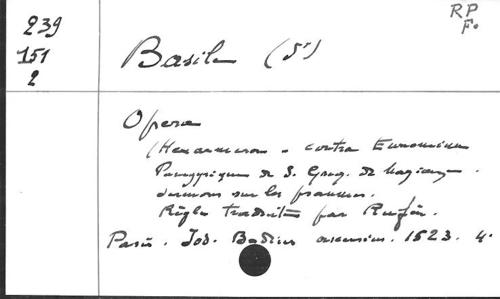 RP
F.
239
151
2
Basile (St)
Opera
(Hexaemeron - contra Eunomium
Panégyrique de S. Greg. de Nazianze.
sermons sur les psaumes.
Règles traduites par Rufin.
Paris. Jod. Badius ascensius. 1523. 4°